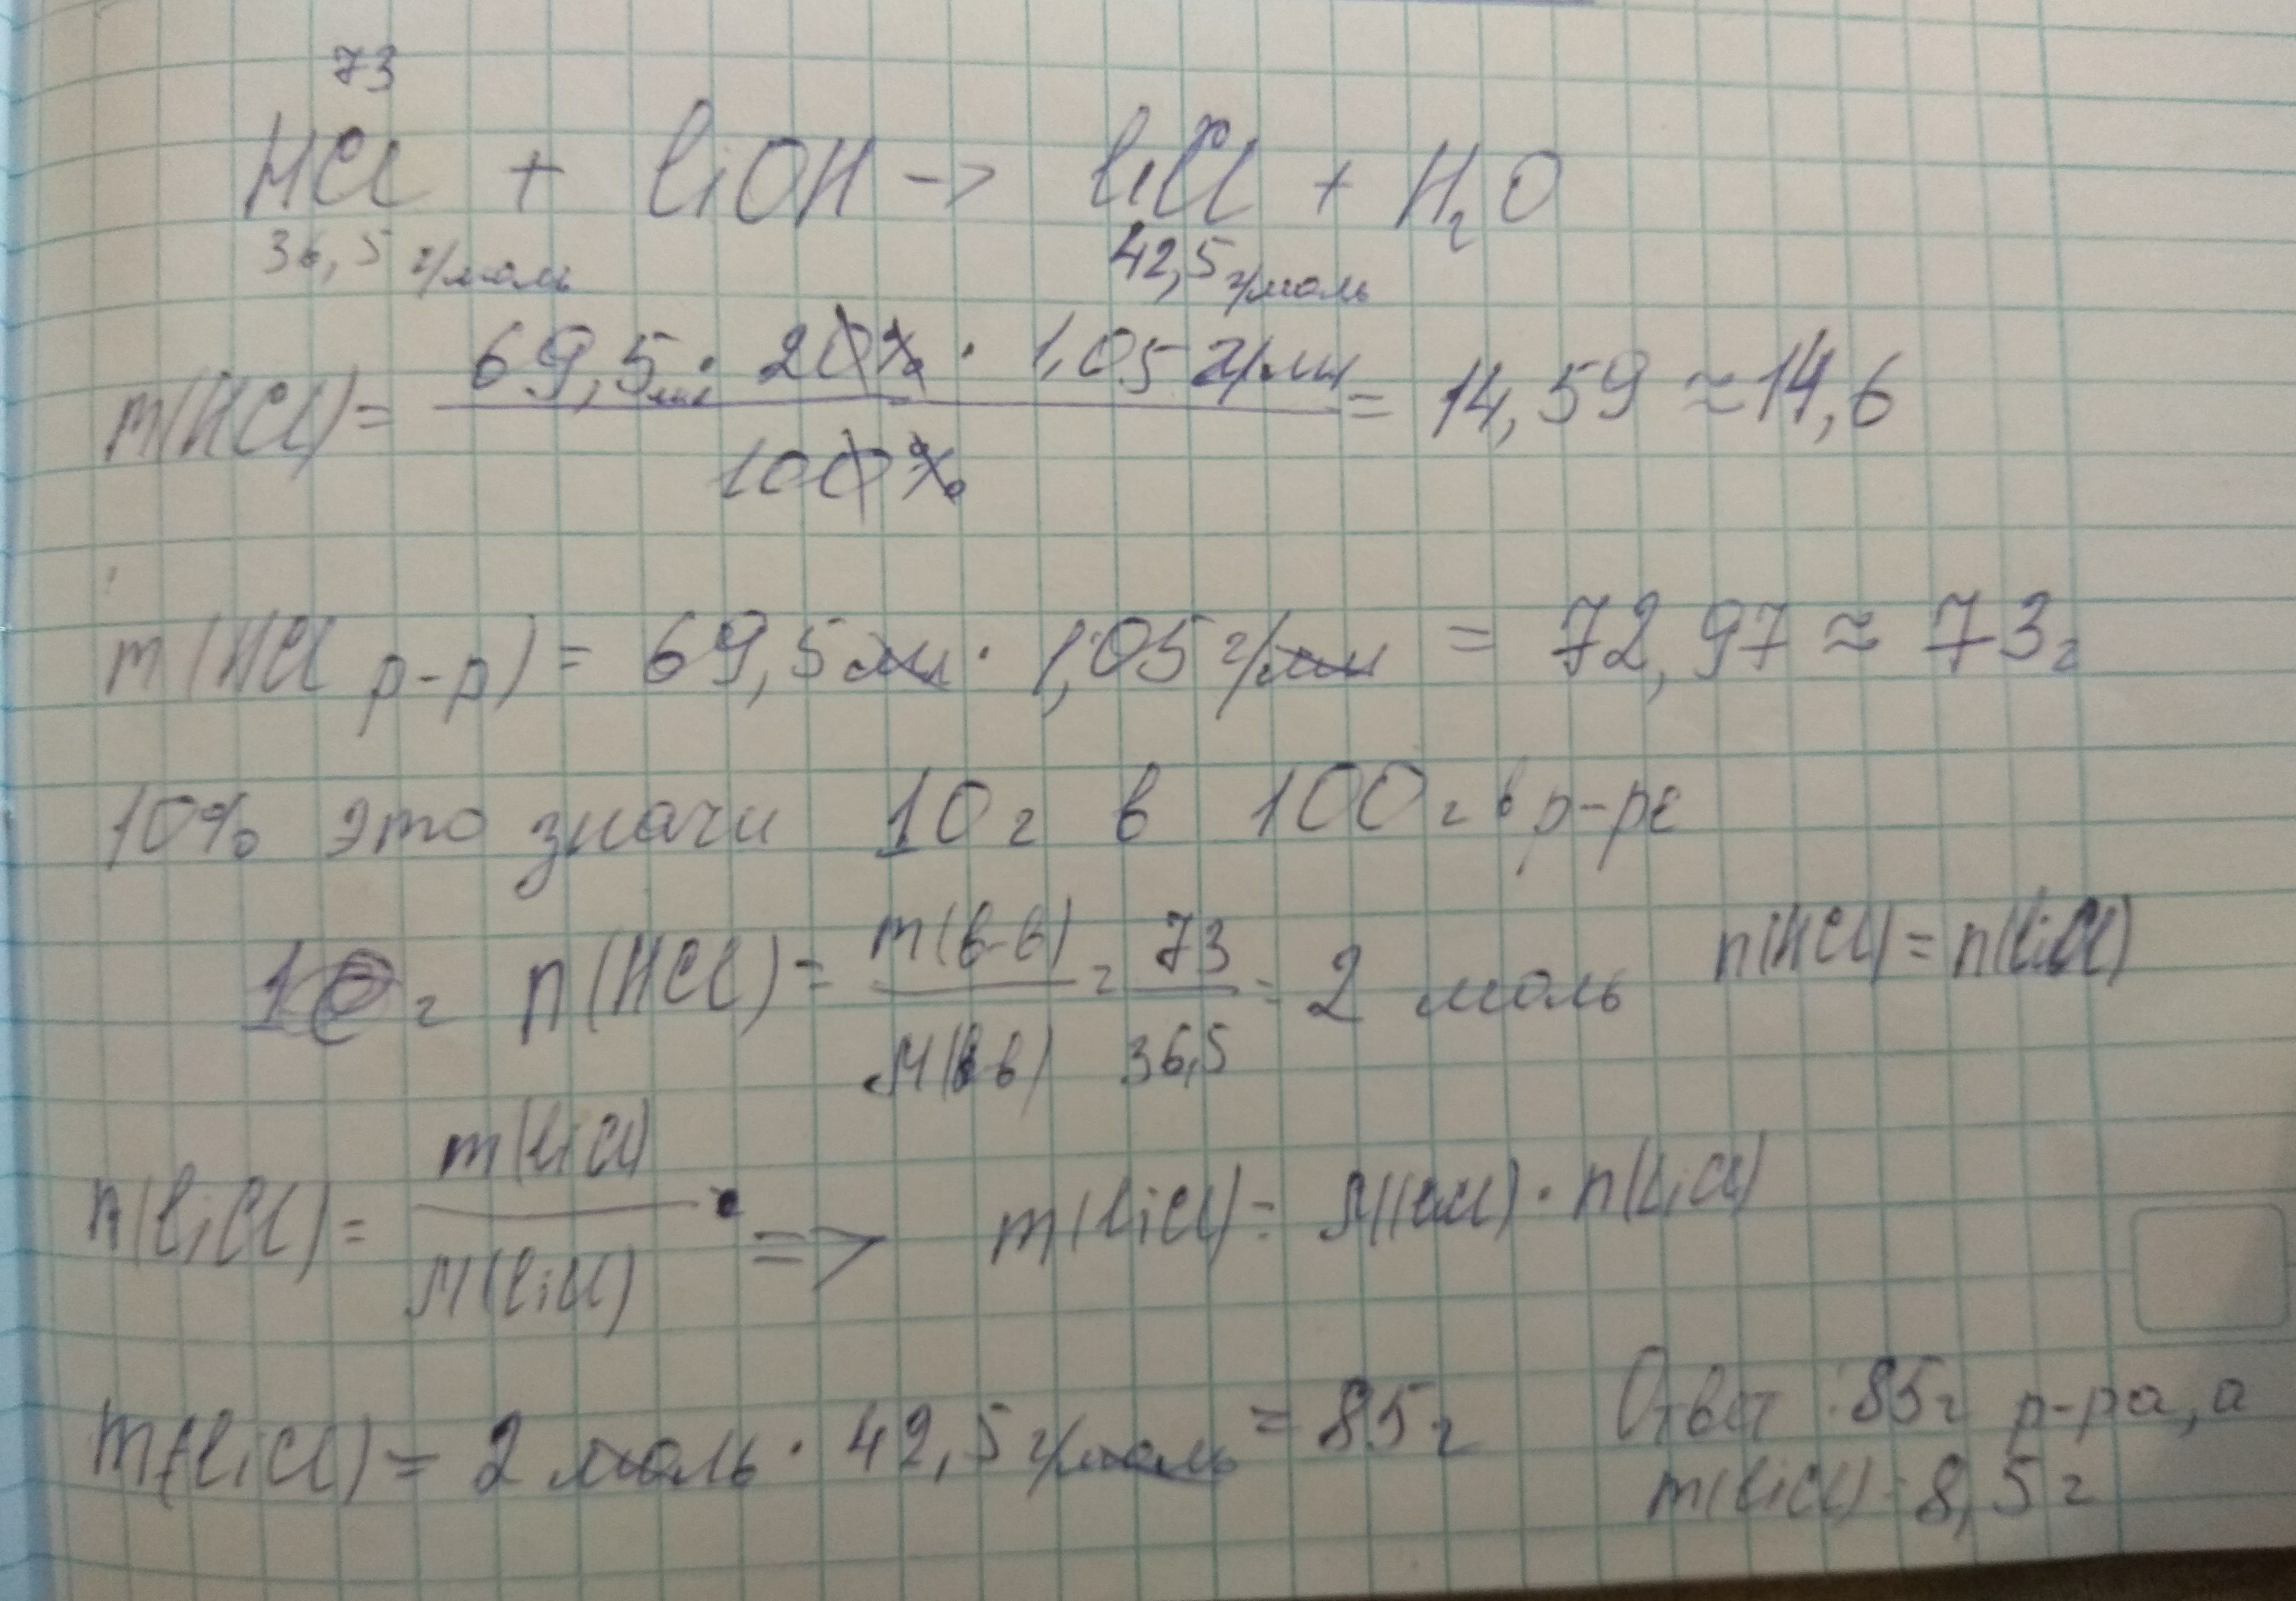 73
HCl + LiOH -> LiCl + H₂O
36,5 г/моль 42,5 г/моль
m(HCl) = 69,5 мл · 20% · 1,05 г/мл / 100% = 14,59 ≈ 14,6
m(HCl р-р) = 69,5 мл · 1,05 г/мл = 72,97 ≈ 73 г
10% это значи 10 г в 100 г в р-ре
10 г n(HCl) = m(в-в) / M(в-в) = 73 / 36,5 = 2 моль n(HCl) = n(LiCl)
n(LiCl) = m(LiCl) / M(LiCl) => m(LiCl) = M(LiCl) · n(LiCl)
m(LiCl) = 2 моль · 42,5 г/моль = 85 г
Ответ : 85 г р-ра, а
m(LiCl) - 8,5 г